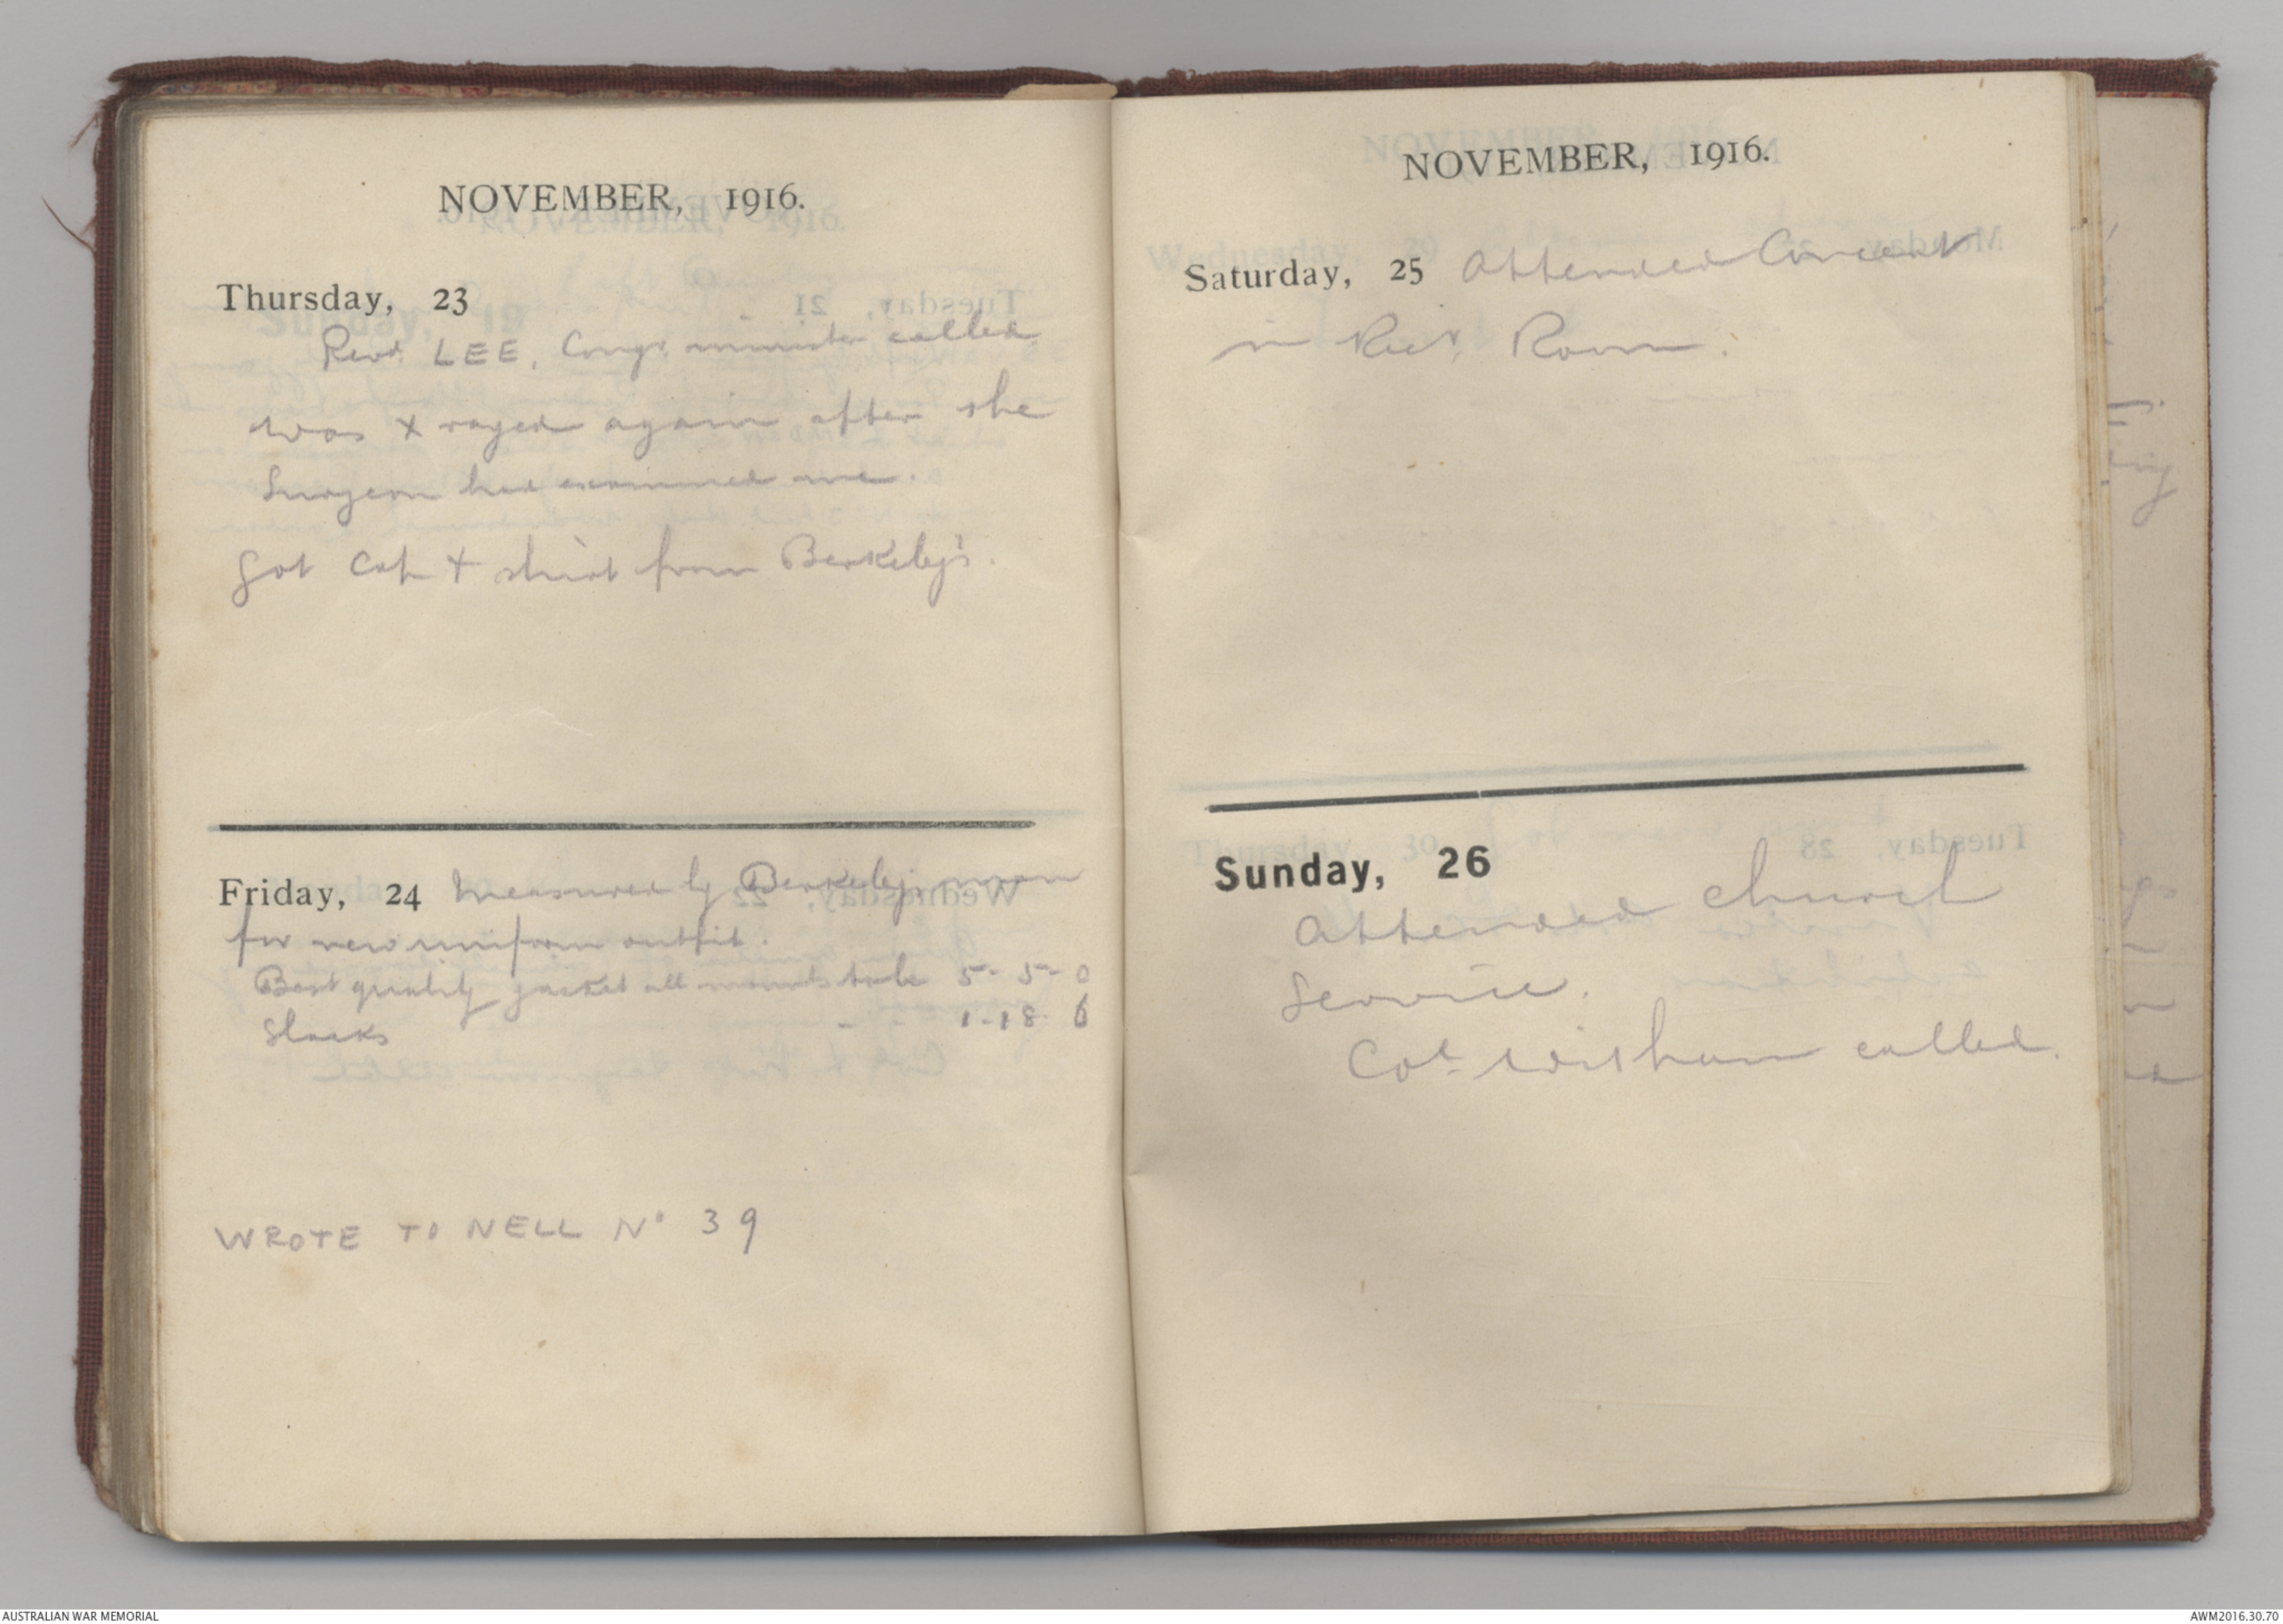 NOVEMBER, 1916.
Thursday, 23
Revd. LEE, Congr. minister called
was X rayed again after the
Surgeon had examined me.
Got cap & shirt from Berkeley's.
Friday, 24 Measured by Berkeley's man
for new uniform outfit.
Best quality jacket all 5 - 5 - 0
Slacks - - 1 - 18 - 6
WROTE TO NELL No 39
NOVEMBER, 1916.
Saturday, 25 Attended Concert
in Recn. Room.
Sunday, 26
Attended church
Service.
Col. called.
AUSTRALIAN WAR MEMORIAL
AWM2016.30.70